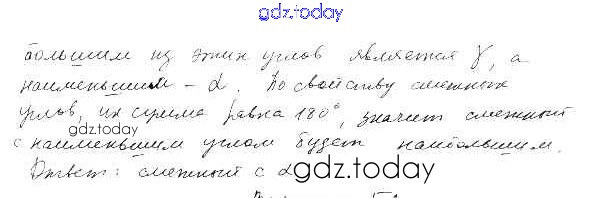 gdz.today
большим из этих углов является γ, а
наименьшим – α. По свойству смежных
углов, их сумма равна 180°, значит смежный
gdz.today
с наименьшим углом будет наибольшим.
Ответ: смежный с α
gdz.today